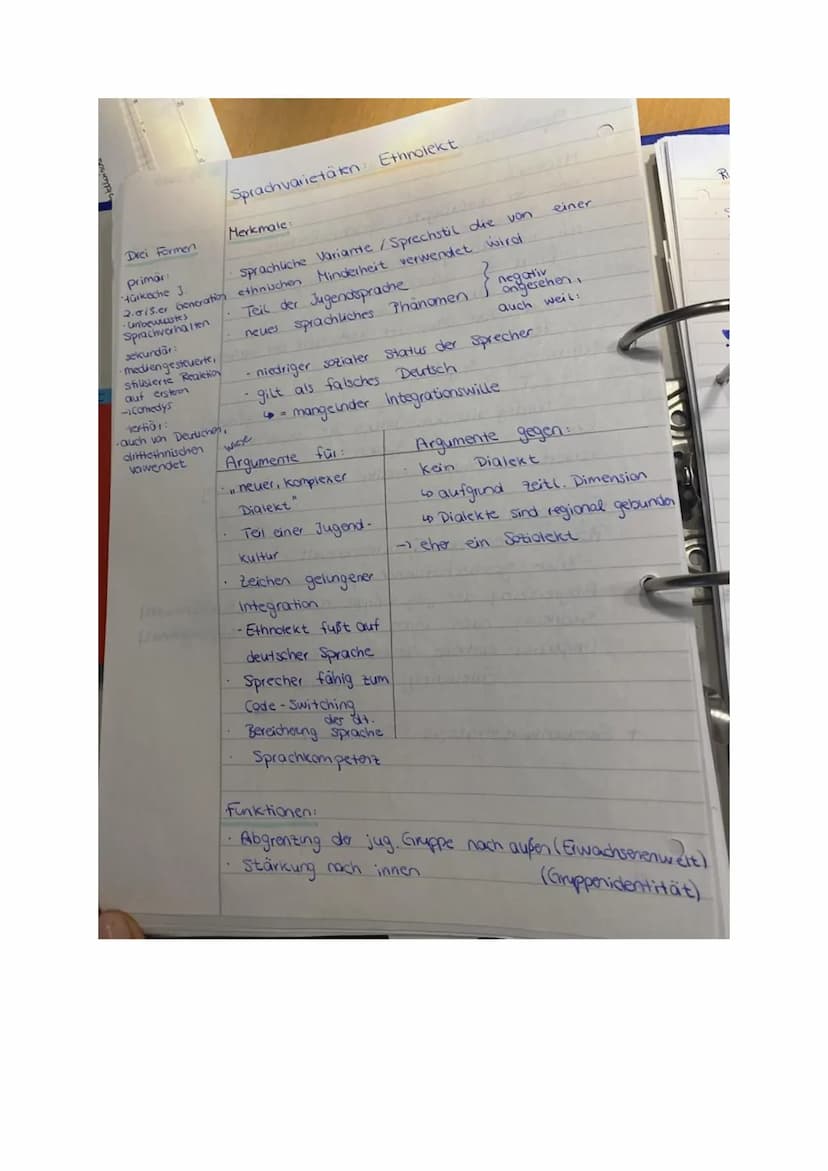 Sprachvarietäten: Ethnolekt
Drei Formen
primär:
· türkische J.
2. o. 3. er Generation
· unbewusstes
Sprachverhalten
sekundär:
· mediengesteuerte,
stilisierte Reaktion
auf ersten
→ Comedys
tertiär:
· auch von Deutschen,
drittethnischen
verwendet
Merkmale:
· sprachliche Variante / Sprechstil die von einer
ethnischen Minderheit verwendet wird
· Teil der Jugendsprache
· neues sprachliches Phänomen
negativ
angesehen,
auch weil:
- niedriger sozialer Status der Sprecher
· gilt als falsches Deutsch
↳ = mangelnder Integrationswille
Argumente für:
· „neuer, komplexer
Dialekt"
· Teil einer Jugend-
kultur
· Zeichen gelungener
Integration
- Ethnolekt fußt auf
deutscher Sprache
· Sprecher fähig zum
Code-Switching
der dt.
· Bereicherung Sprache
· Sprachkompetenz
Argumente gegen:
· Kein Dialekt
↳ aufgrund zeitl. Dimension
↳ Dialekte sind regional gebunden
→ eher ein Soziolekt
Funktionen:
· Abgrenzung der jug. Gruppe nach außen (Erwachsenenwelt)
· Stärkung nach innen (Gruppenidentität)